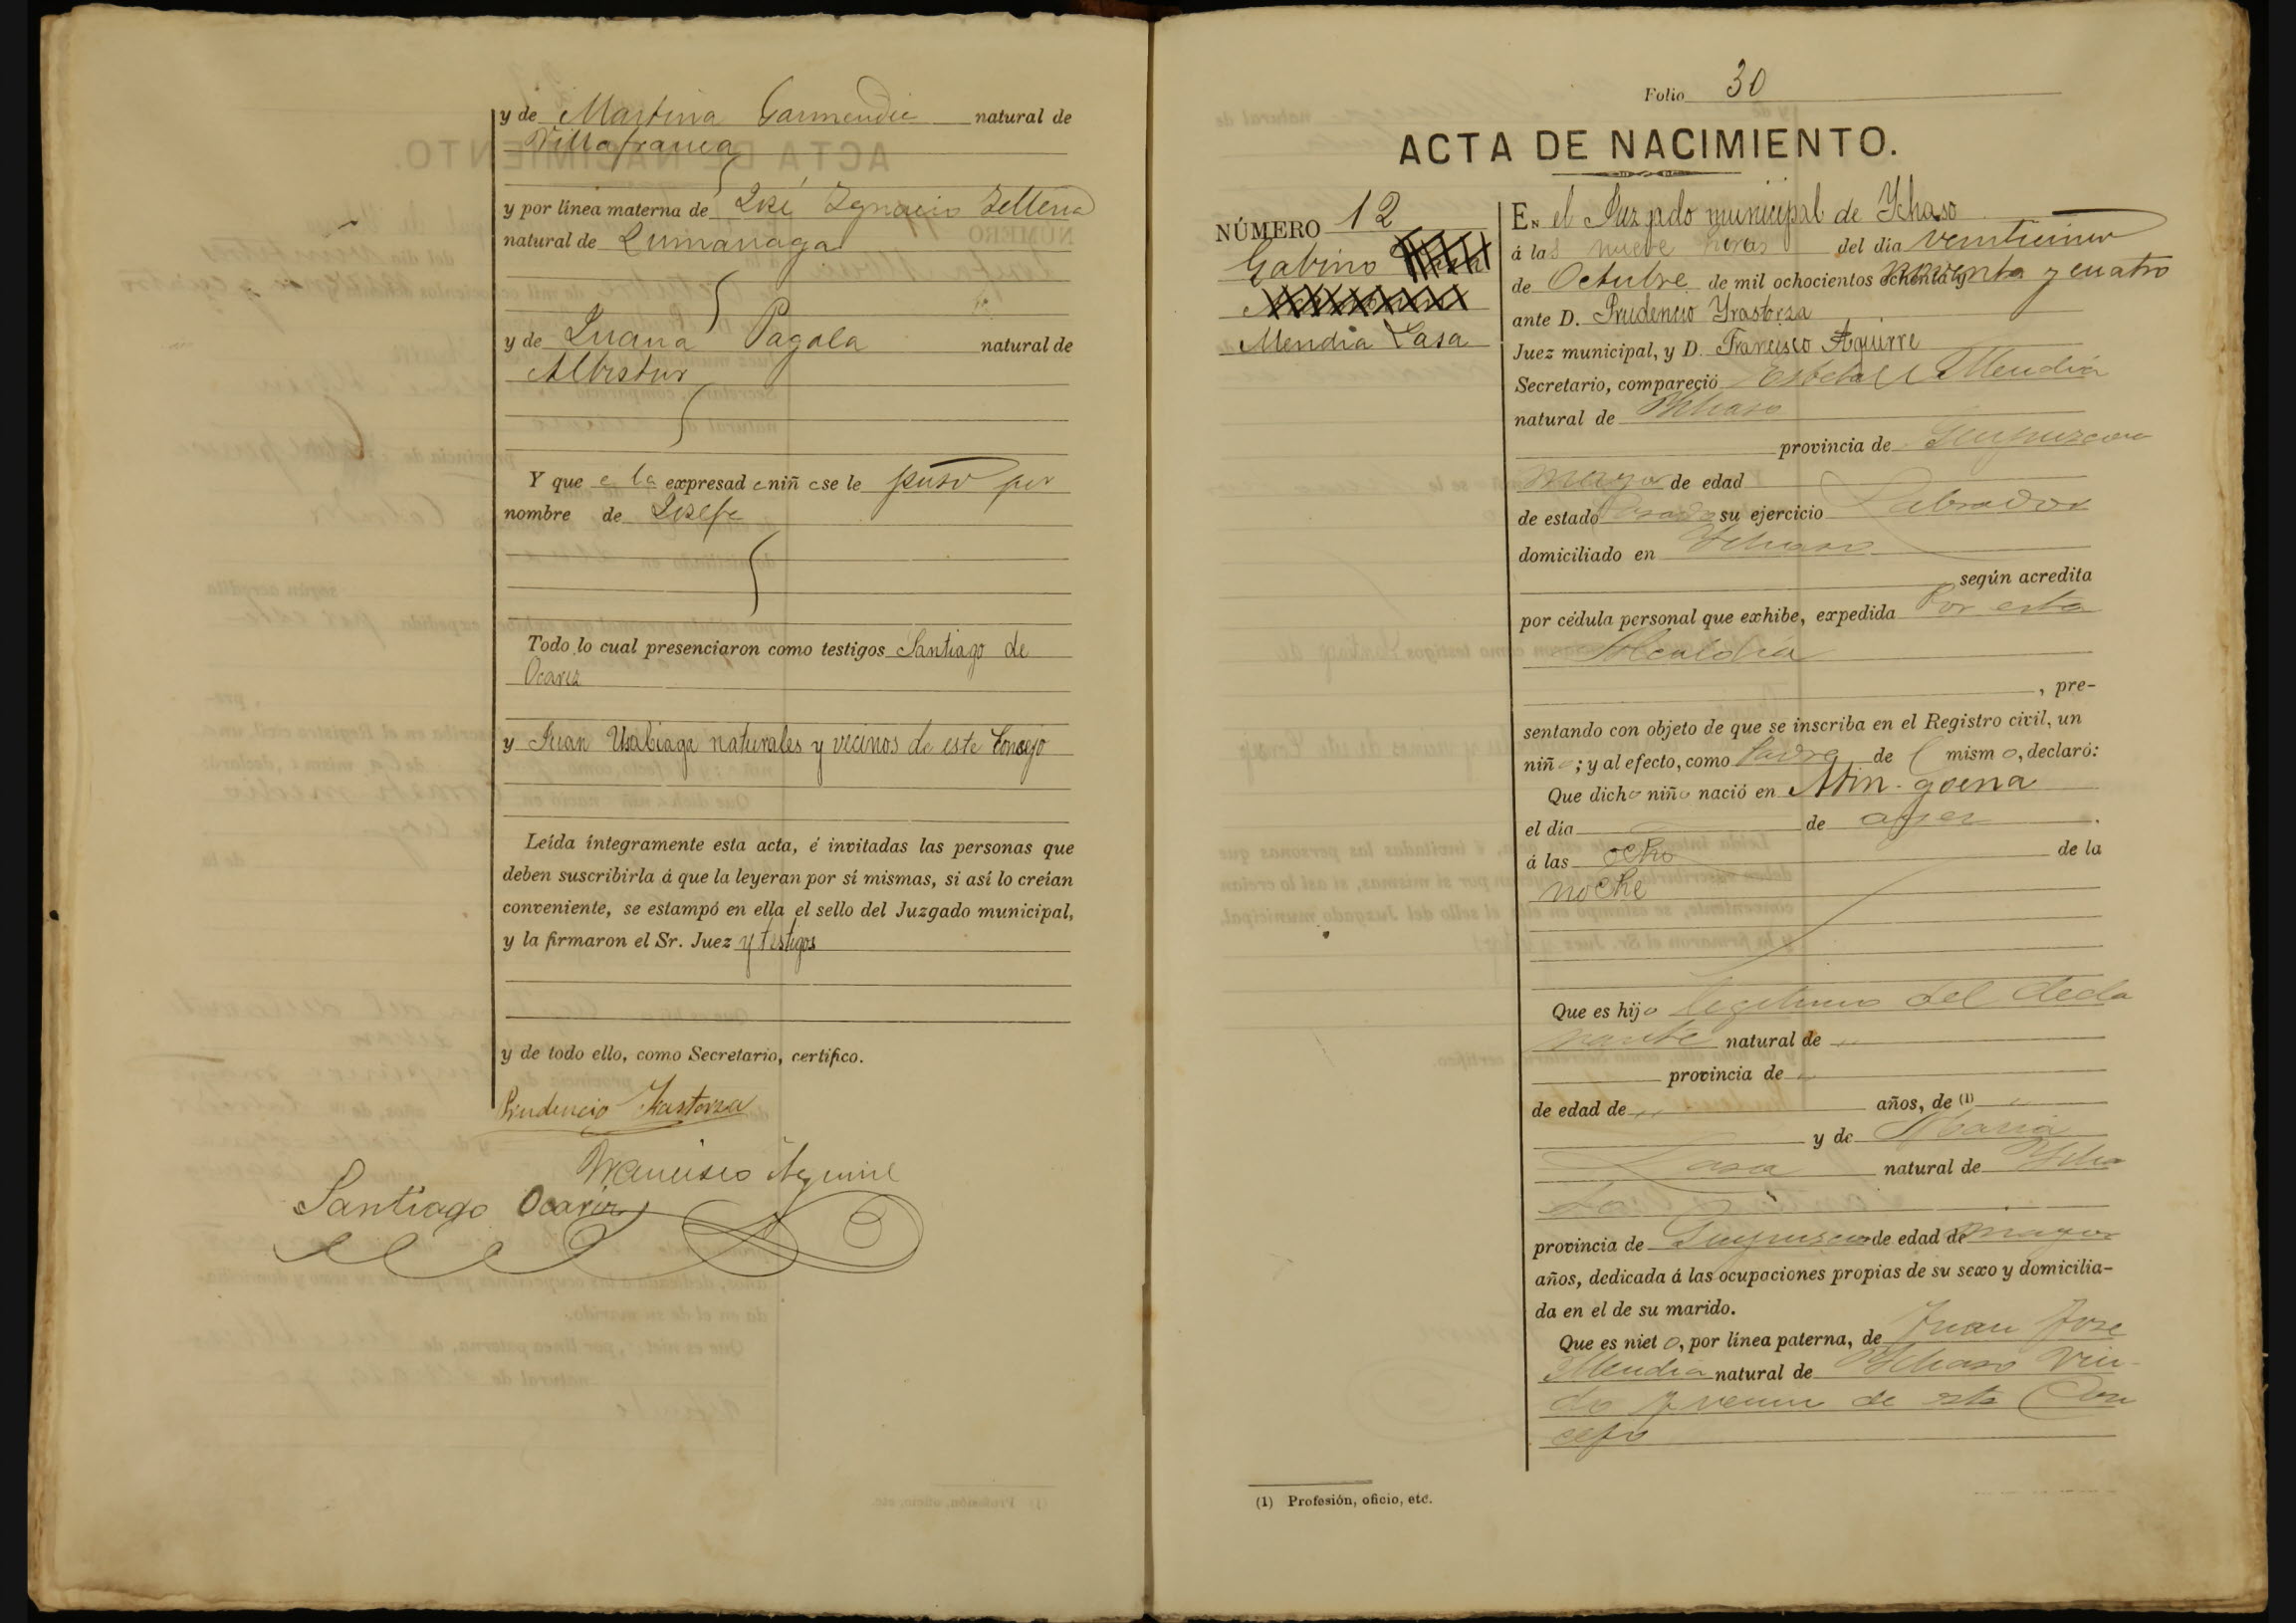 y de Martina Garmendia natural de
Villafranca
y por línea materna de José Ygnacio Telleria
natural de Zumarraga
y de Juana Pagola natural de
Albistur
Y que a la expresad a niñ a se le puso por
nombre de Josefa
Todo lo cual presenciaron como testigos Santiago de
Ocariz
y Juan Usabiaga naturales y vecinos de este Concejo
Leída íntegramente esta acta, é invitadas las personas que
deben suscribirla á que la leyeran por sí mismas, si así lo creían
conveniente, se estampó en ella el sello del Juzgado municipal,
y la firmaron el Sr. Juez y testigos
y de todo ello, como Secretario, certifico.
Prudencio Yrastorza
Francisco Aguirre
Santiago Ocariz
Folio 30
ACTA DE NACIMIENTO.
NÚMERO 12
Gabino
Mendia Lasa
EN el Juzgado municipal de Ychaso
á las nueve horas del día veintiuno
de Octubre de mil ochocientos ochenta y noventa y cuatro
ante D. Prudencio Yrastorza
Juez municipal, y D. Francisco Aguirre
Secretario, compareció Mendia
natural de Ychaso
provincia de Guipuzcoa
mayor de edad
de estado casado su ejercicio Labrador
domiciliado en Ychaso
según acredita
por cédula personal que exhibe, expedida Por esta
Alcaldia
, pre-
sentando con objeto de que se inscriba en el Registro civil, un
niñ o; y al efecto, como Padre de l mism o, declaró:
Que dicho niño nació en Min-goena
el día de ayer.
á las ocho de la
noche
Que es hijo legitimo del decla
rante natural de „
provincia de „
de edad de „ años, de (1) „
y de Maria
Lasa natural de Ycha
so
provincia de Guipuzcoa de edad de mayor
años, dedicada á las ocupaciones propias de su sexo y domicilia-
da en el de su marido.
Que es niet o, por línea paterna, de Juan Jose
Mendia natural de Ychaso viu-
do y vecino de este Con
cejo
(1) Profesión, oficio, etc.